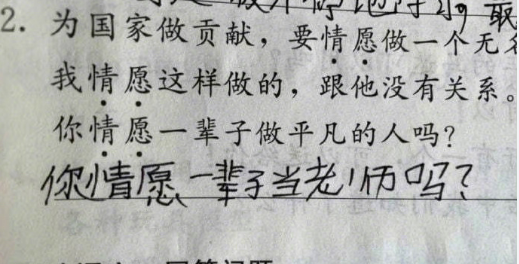 2. 为国家做贡献，要情愿做一个无名
我情愿这样做的，跟他没有关系。
你情愿一辈子做平凡的人吗？
你情愿一辈子当老师吗？